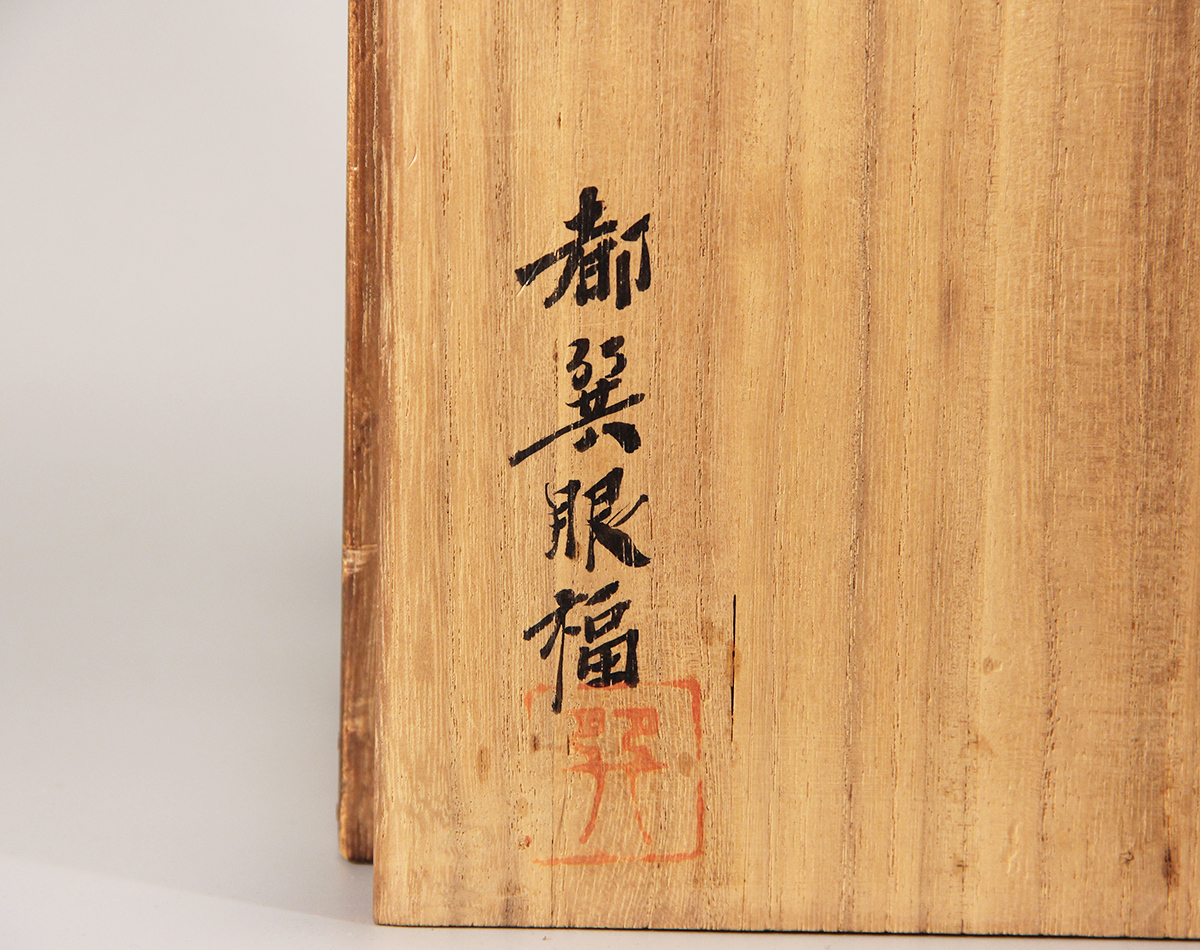 都巽眼福
巽